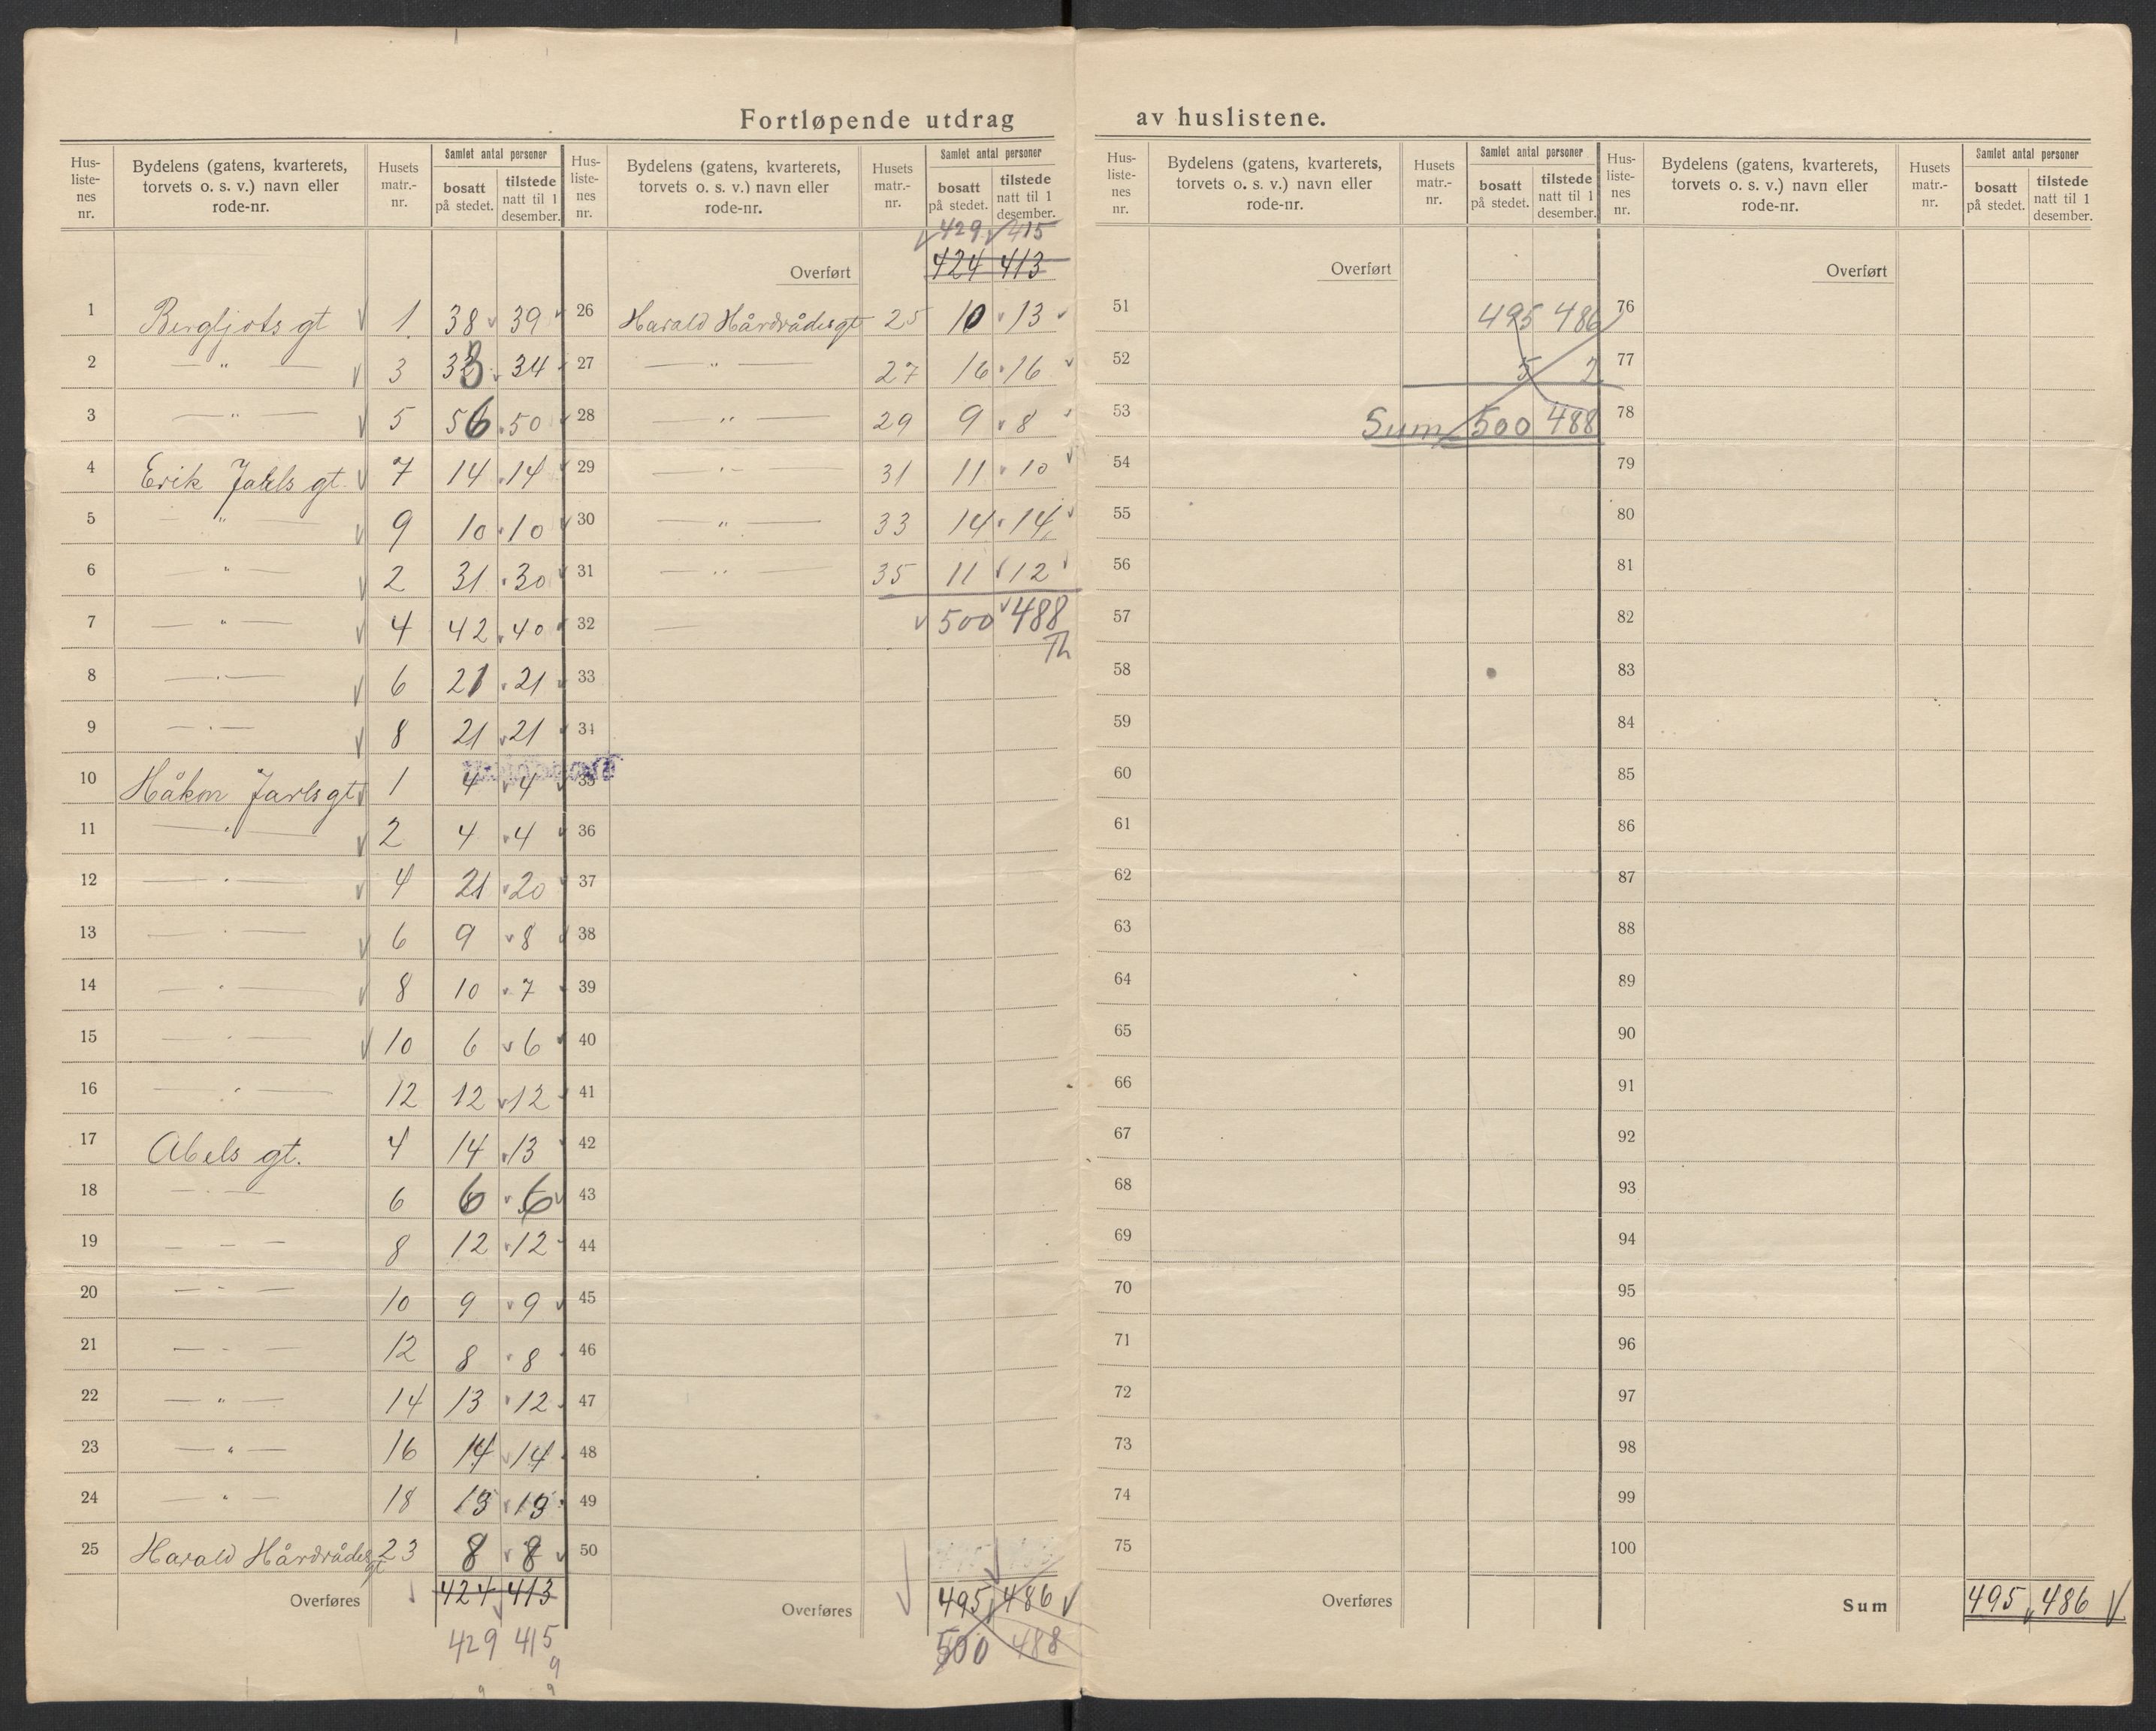 Fortløpende utdrag av huslistene.
Hus-liste-nes nr. | Bydelens (gatens, kvarterets, torvets o. s. v.) navn eller rode-nr. | Husets matr.-nr. | Samlet antal personer | bosatt på stedet. | tilstede natt til 1 desember.
1 Bergljots gt 1 38 39
2 — " — 3 33 34
3 — " — 5 56 50
4 Erik Jarls gt. 7 14 14
5 — " — 9 10 10
6 — " — 2 31 30
7 — " — 4 42 40
8 — " — 6 21 21
9 — " — 8 21 21
10 Håkon Jarls gt 1 4 4
11 — " — 2 4 4
12 — " — 4 21 20
13 — " — 6 9 8
14 — " — 8 10 7
15 — " — 10 6 6
16 — " — 12 12 12
17 Abels gt. 4 14 13
18 — " — 6 6 6
19 — — — 8 12 12
20 — " — 10 9 9
21 — - — 12 8 8
22 — " — 14 13 12
23 — " — 16 14 14
24 — " — 18 13 13
25 Harald Hårdrådes gt 23 8 8
Overføres 424 413
429 415
9
9 9
Hus-liste-nes nr. | Bydelens (gatens, kvarterets, torvets o. s. v.) navn eller rode-nr. | Husets matr.-nr. | Samlet antal personer | bosatt på stedet. | tilstede natt til 1 desember.
429 415
Overført 424 413
26 Harald Hårdrådes gt 25 10 13
27 — " — 27 16 16
28 — " — 29 9 8
29 — " — 31 11 10
30 — " — 33 14 14
31 — " — 35 11 12
32 — 500 488
Th
33
34
35
36
37
38
39
40
41
42
43
44
45
46
47
48
49
50
Overføres 495 486
500 488
Hus-liste-nes nr. | Bydelens (gatens, kvarterets, torvets o. s. v.) navn eller rode-nr. | Husets matr.-nr. | Samlet antal personer | bosatt på stedet. | tilstede natt til 1 desember.
Overført
51 495 486
52 5 2
53 Sum 500 488
54
55
56
57
58
59
60
61
62
63
64
65
66
67
68
69
70
71
72
73
74
75
Overføres
Hus-liste-nes nr. | Bydelens (gatens, kvarterets, torvets o. s. v.) navn eller rode-nr. | Husets matr.-nr. | Samlet antal personer | bosatt på stedet. | tilstede natt til 1 desember.
Overført
76
77
78
79
80
81
82
83
84
85
86
87
88
89
90
91
92
93
94
95
96
97
98
99
100
Sum 495 486